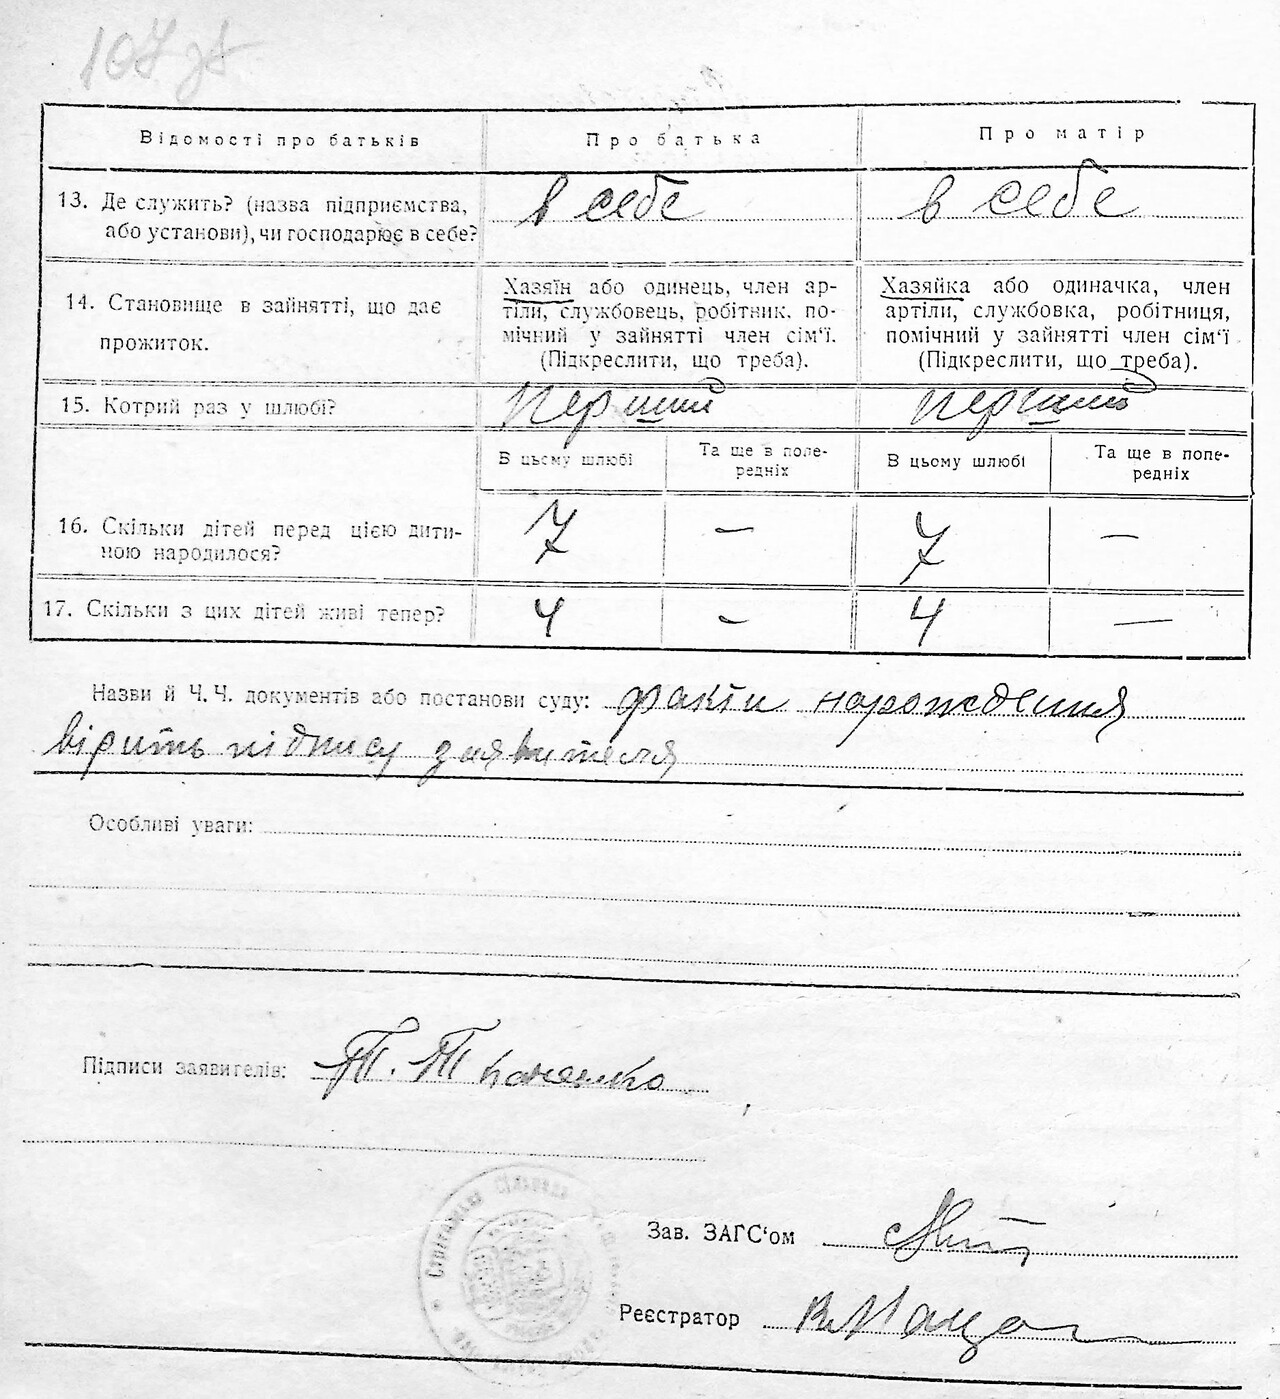 107 зв
Відомості про батьків
Про батька
Про матір
13. Де служить? (назва підприємства,
або установи), чи господарює в себе?
в себе
в себе
14. Становище в зайнятті, що дає
прожиток.
Хазяїн або одинець, член ар-
тілі, службовець, робітник. по-
мічний у зайнятті член сім‘ї.
(Підкреслити, що треба).
Хазяйка або одиначка, член
артіли, службовка, робітниця,
помічний у зайнятті член сім‘ї
(Підкреслити, що треба).
15. Котрий раз у шлюбі?
перший
перший
В цьому шлюбі
Та ще в попе-
редніх
В цьому шлюбі
Та ще в попе-
редніх
16. Скільки дітей перед цією дити-
ною народилося?
7
—
7
—
17. Скільки з цих дітей живі тепер?
4
—
4
—
Назви й Ч.Ч. документів або постанови суду: факти нарождения
вірить підпису заявителя
Особливі уваги:
Підписи заявителів: Т. Ткаченко
Зав. ЗАГС‘ом
Реєстратор
Сільська